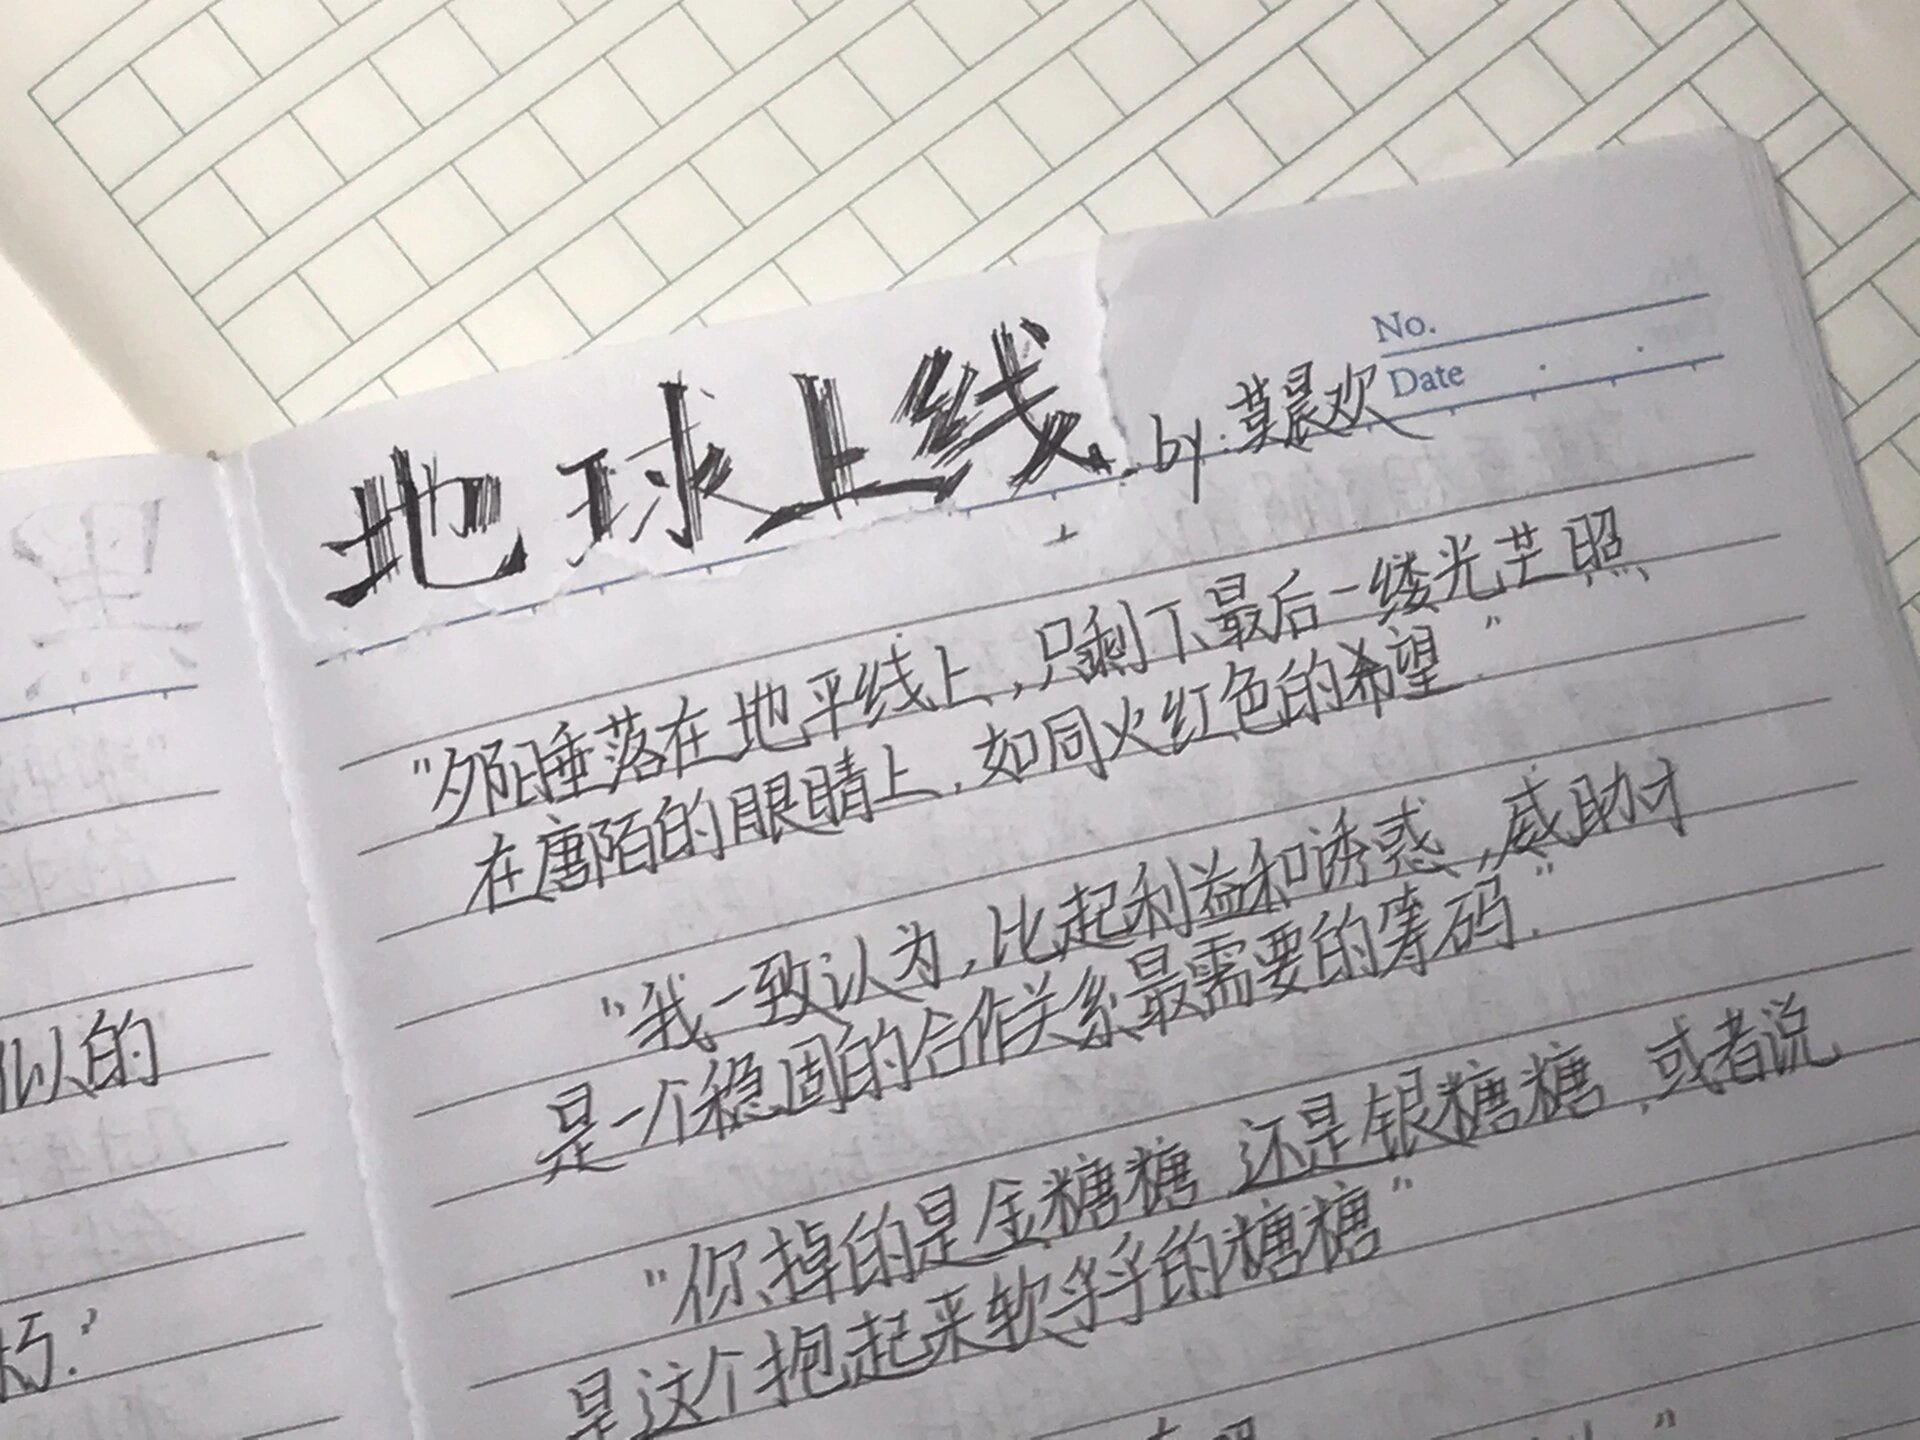 No.
Date
地球上线 by:莫晨欢
"夕阳垂落在地平线上,只剩下最后一缕光芒照
在唐陌的眼睛上,如同火红色的希望."
"我一致认为,比起利益和诱惑,威胁才
是一个稳固的合作关系最需要的筹码."
"你掉的是金糖糖,还是银糖糖,或者说
是这个抱起来软乎乎的糖糖"
似的
巧?